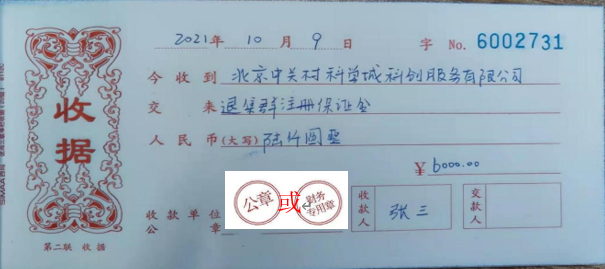 2021年 10月 9日 字 No. 6002731
收据
今收到 北京中关村科学城科创服务有限公司
交来 退集群注册保证金
人民币(大写) 陆仟圆整
¥ 6000.00
公章 或 财务专用章
收款单位公章
收款人 张三
交款人
第二联 收据